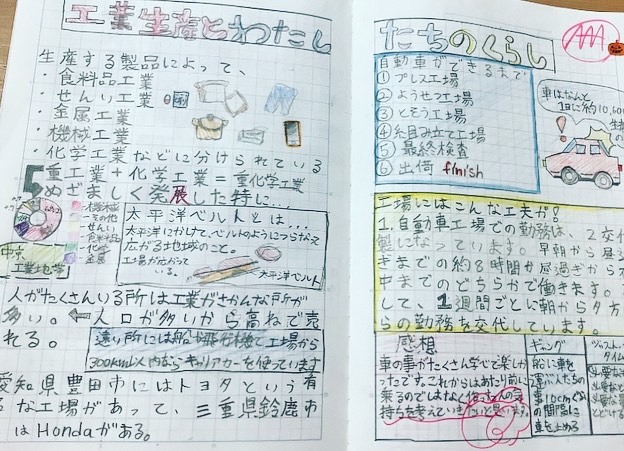 工業生産とわたし
生産する製品によって、
・食料品工業
・せんい工業
・金属工業
・機械工業
・化学工業などに分けられている
重工業+化学工業=重化学工業
めざましく発展した特に…
機械
その他
せんい
食料品
化学
金属
中京
工業地帯
太平洋ベルトとは…
太平洋にかけて、ベルトのようにつらなって
広がる地域のこと。
工場が広がって
いる。
太平洋ベルト
人がたくさんいる所は工業がさかんな所が
多い。⇐人口が多いから高ねで売
れる。
遠い所には船や飛行機で工場から
300km以内ならキャリアカーを使っています
愛知県豊田市にはトヨタという有
な工場があって、三重県鈴鹿市
はHondaがある。
たちのくらし
AAA
自動車ができるまで
①プレス工場
②ようせつ工場
③とそう工場
④組み立て工場
⑤最終検査
⑥出荷 finish
車はなんと
1日に約10,60
生
工場にはこんな工夫が!
1.自動車工場での勤務は、2交代
製になっています。早朝から昼
きまでの約8時間か昼過ぎから
中までのどちらかで働きます。
して、1週間ごとに朝から夕方
らの勤務を交代しています。
感想
車の事がたくさん学べて楽しか
ったです。これからはあたり前に
乗るのではなく
持ちを考えていきたいと思います。
ギャング
船に車を
運ぶ人たちの
事10cmぐらい
の間隔に
車を止める
ジャスト
タイム
必要な
必要な
必要な
とどける